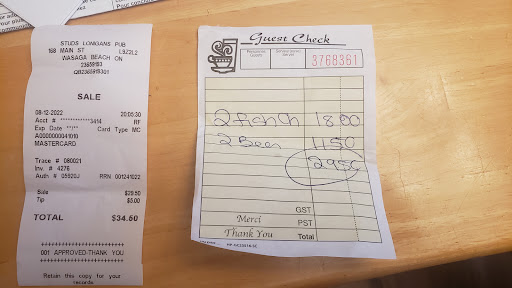 STUDS LONIGANS PUB
168 MAIN ST L9Z2L2
WASAGA BEACH ON
23659193
QB2365919301
SALE
08-12-2022 20:05:30
Acct # ************3414 RF
Exp Date **/** Card Type MC
A0000000041010
MASTERCARD
Trace # 080021
Inv. # 4276
Auth # 05920J RRN 001241022
Sale $29.50
Tip $5.00
TOTAL $34.50
++++++++++++++++++++++
001 APPROVED-THANK YOU
++++++++++++++++++++++
Retain this copy for your
records
Guest Check
3768361
2 fish 18 00
2 Beer 11 50
29 50
GST
Merci PST
Thank You Total